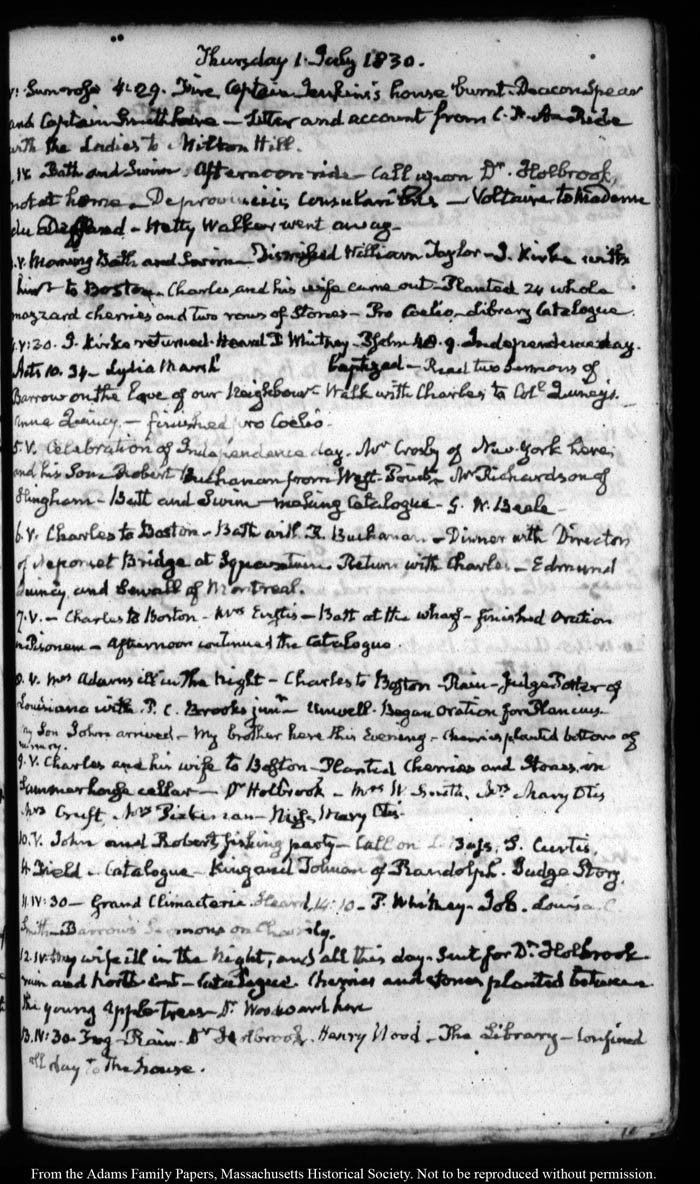 Thursday 1. July 1830.
V. Sun rose 4:29. Fire, Captain Jenkins's house burnt. Deacon Spear
and Captain Smith here — Letter and account from C. F. A. Ride
with the Ladies to Milton Hill.
Bath and Swim. Afternoon ride — Call upon Dr. Holbrook,
not at home — De provinciis Consularibus — Voltaire to Madame
du Deffand — Hetty Walker went away —
V. Morning Bath and Swim — Dismissed William Taylor — J. Kirke with
him to Boston. Charles, and his wife came out — Planted 24 whole
mazzard cherries and two rows of Stones — Pro Coelio — Library Catalogue.
V:30. J. Kirke returned. Heard P. Whitney — Psalm 48. 9. Independence day.
Acts 10. 34 — Lydia Marsh baptized — Read two Sermons of
Barrow on the Love of our Neighbour. Walk with Charles to Coll. Quincy's.
Anne Quincy. — finished pro Coelio.
5. V. Celebration of Independence day. Mr Crosby of New-York here,
and his Son. Robert Buchanan from West-Point. Mr Richardson of
Hingham — Bath and Swim — making Catalogue — G. W. Beale —
6. V. Charles to Boston — Bath with R. Buchanan — Dinner with Directors
of Neponset Bridge at Squantum. Return with Charles — Edmund
Quincy, and Sewall of Montreal.
7. V. — Charles to Boston — Mrs — Bath at the wharf — finished Oration
in Pisonem — Afternoon continued the Catalogue.
8. V. Mrs Adams ill in the Night — Charles to Boston — Rain — Judge Porter of
Louisiana with P. C. Brooks junr. — Unwell. Began Oration for Plancius —
my Son John arrived — My brother here this Evening — Cherries planted bottom of
nursery.
9. V. Charles and his wife to Boston — Planted Cherries and Stones, in
Summer house cellar — Dr Holbrook — Mrs W. Smith, Mrs Mary Otis
Mrs Cruft, Mrs — Miss Mary Otis.
10. V. John and Robert, fishing party — Call on L. Bass, S. Curtis,
H. Field — Catalogue — King and Tolman of Randolph. Judge Story.
11. IV:30 — Grand Climacteric. Heard, 14:10 — P. Whitney — Job. Louisa C.
Smith — Barrow's Sermons on Charity.
12. IV. My wife ill in the Night, and all this day — Sent for Dr Holbrook
rain and North East — Catalogue. Cherries and stones planted between
the young Apple trees — Dr Woodward here
13. IV:30. Fog — Rain — Dr Holbrook. Henry Wood — The Library — Confined
all day to the house.
From the Adams Family Papers, Massachusetts Historical Society. Not to be reproduced without permission.